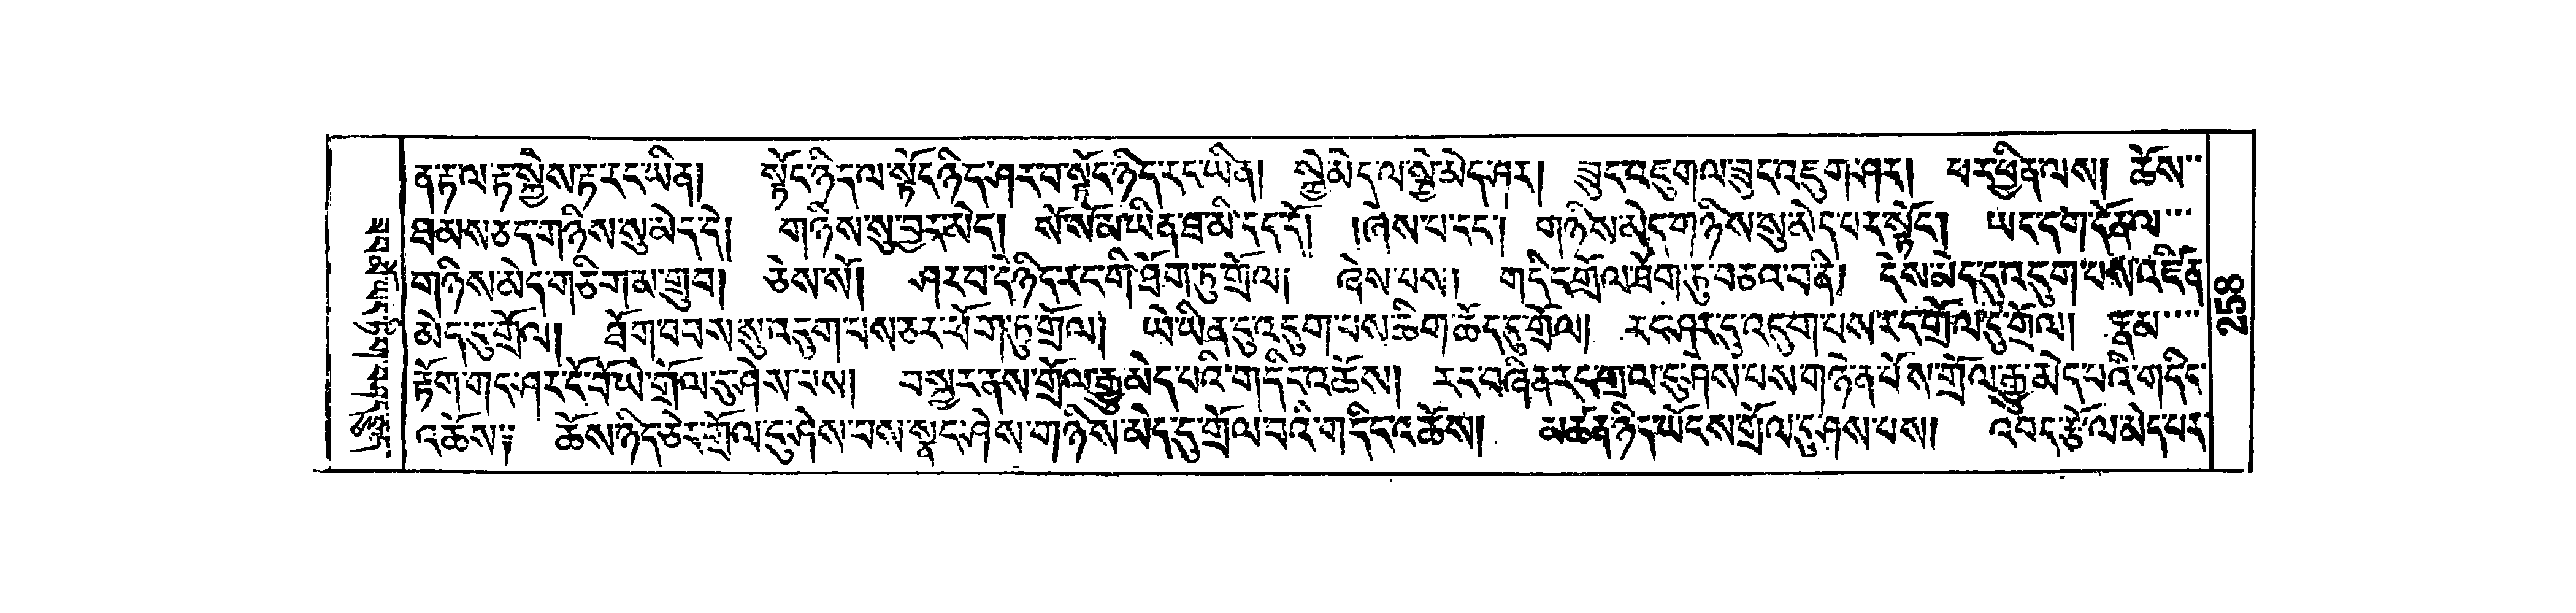 ན་རྟ་ལ་རྟ་སྐྱེས་རྟ་རང་ཡིན། སྟོང་ཉིད་ལ་སྟོང་ཉིད་ཤར་བ་སྟོང་ཉིད་རང་ཡིན། སྐྱེ་མེད་ལ་སྐྱེ་མེད་ཤར། ཟུང་འཇུག་ལ་ཟུང་འཇུག་ཤར། ཕར་ཕྱིན་ལས། ཆོས་
ཐམས་ཅད་གཉིས་སུ་མེད་དེ། གཉིས་སུ་བྱར་མེད། སེ་སོམ་ཡིན་ཟླ་མི་དང་ངོ༌། །ཞེས་པ་དང་། གཉིས་མེད་གཉིས་སུ་མེད་པར་སྟོད། ཡང་དག་དོན་ལ་
གཉིས་མེད་གཅིག་ན་གྲུབ། ཅེས་སོ། ཤར་བ་དེ་ཉིད་རང་གི་ཐོག་ཏུ་གྲོལ། ཞེས་པས། གདིང་གྲོལ་ཐོག་ཏུ་བཅའ་བ་ནི། དེས་མེད་དུ་འདུག་པས་འཛིན་
མེད་དུ་གྲོལ། ཐོག་བབས་སུ་འདུག་པས་ཅར་ཕོག་ཏུ་གྲོལ། ཡེ་ཡིན་དུ་འདུག་པས་ཆིག་ཆོད་དུ་གྲོལ། རང་ཤར་དུ་འདུག་པས་རང་གྲོལ་དུ་གྲོལ། རྣམ་
རྟོག་གང་ཤར་ངོ་བོ་ཡེ་གྲོལ་དུ་ཤེས་པས། བསྐྱར་ནས་གྲོལ་རྒྱུ་མེད་པའི་གདིང་འཆོས། རང་བཞིན་རང་གྲོལ་དུ་ཤེས་པས་གཉེན་པོས་གྲོལ་རྒྱུ་མེད་པའི་གདིང་
འཆོས༔ ཆོས་ཉིད་ཅེར་གྲོལ་དུ་ཤེས་པས་སྣང་ཤེས་གཉིས་མེད་དུ་གྲོལ་བའི་གདིང་འཆོས།། མཚན་ཉིད་ཡོངས་གྲོལ་དུ་ཤེས་པས། འབད་རྩོལ་མེད་པར་